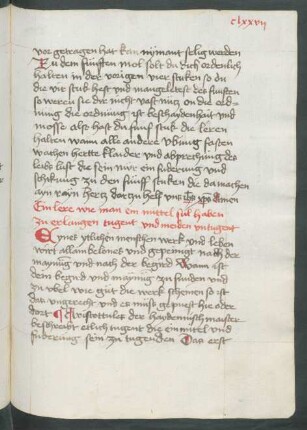 clxxvij
vor getragen hat kan nymant selig werden
Zu dem funften mol solt du dich ordenlich
halten in der vorigen vier stuken so du
die vir stuk hest und mangeletest des funften
so weren sie dir nicht vast nutz on die ord-
nung die ordnung ist beschaidenheit und
mosse also hast du funf stuk die leren
halten wann alle andere ubung fasten
wachen hertte klaider und abprechung des
leibs lust die sein nur ein furderung und
schikung zu den funff stuken die da machen
ayn rayn hertz dorzu helf uns ihs xps Amen
Ein lere wie man ein mittel sul haben
zu erlangen tugent und meiden untugent
Eynes ytlichen menschen werk und leben
wirt allain belonet und gepeinigt nach der
maynug und nach der begird Wann ist
dein begird und maynug zu sunden und
zu ubel wie gut die werk scheinen so ist
das ungerecht und es muss gepuest hie oder
dort Aristottules der haydennisch maister
beschreibt etlich tugent die ein mittel und
furderung sein zu tugenden Das erst